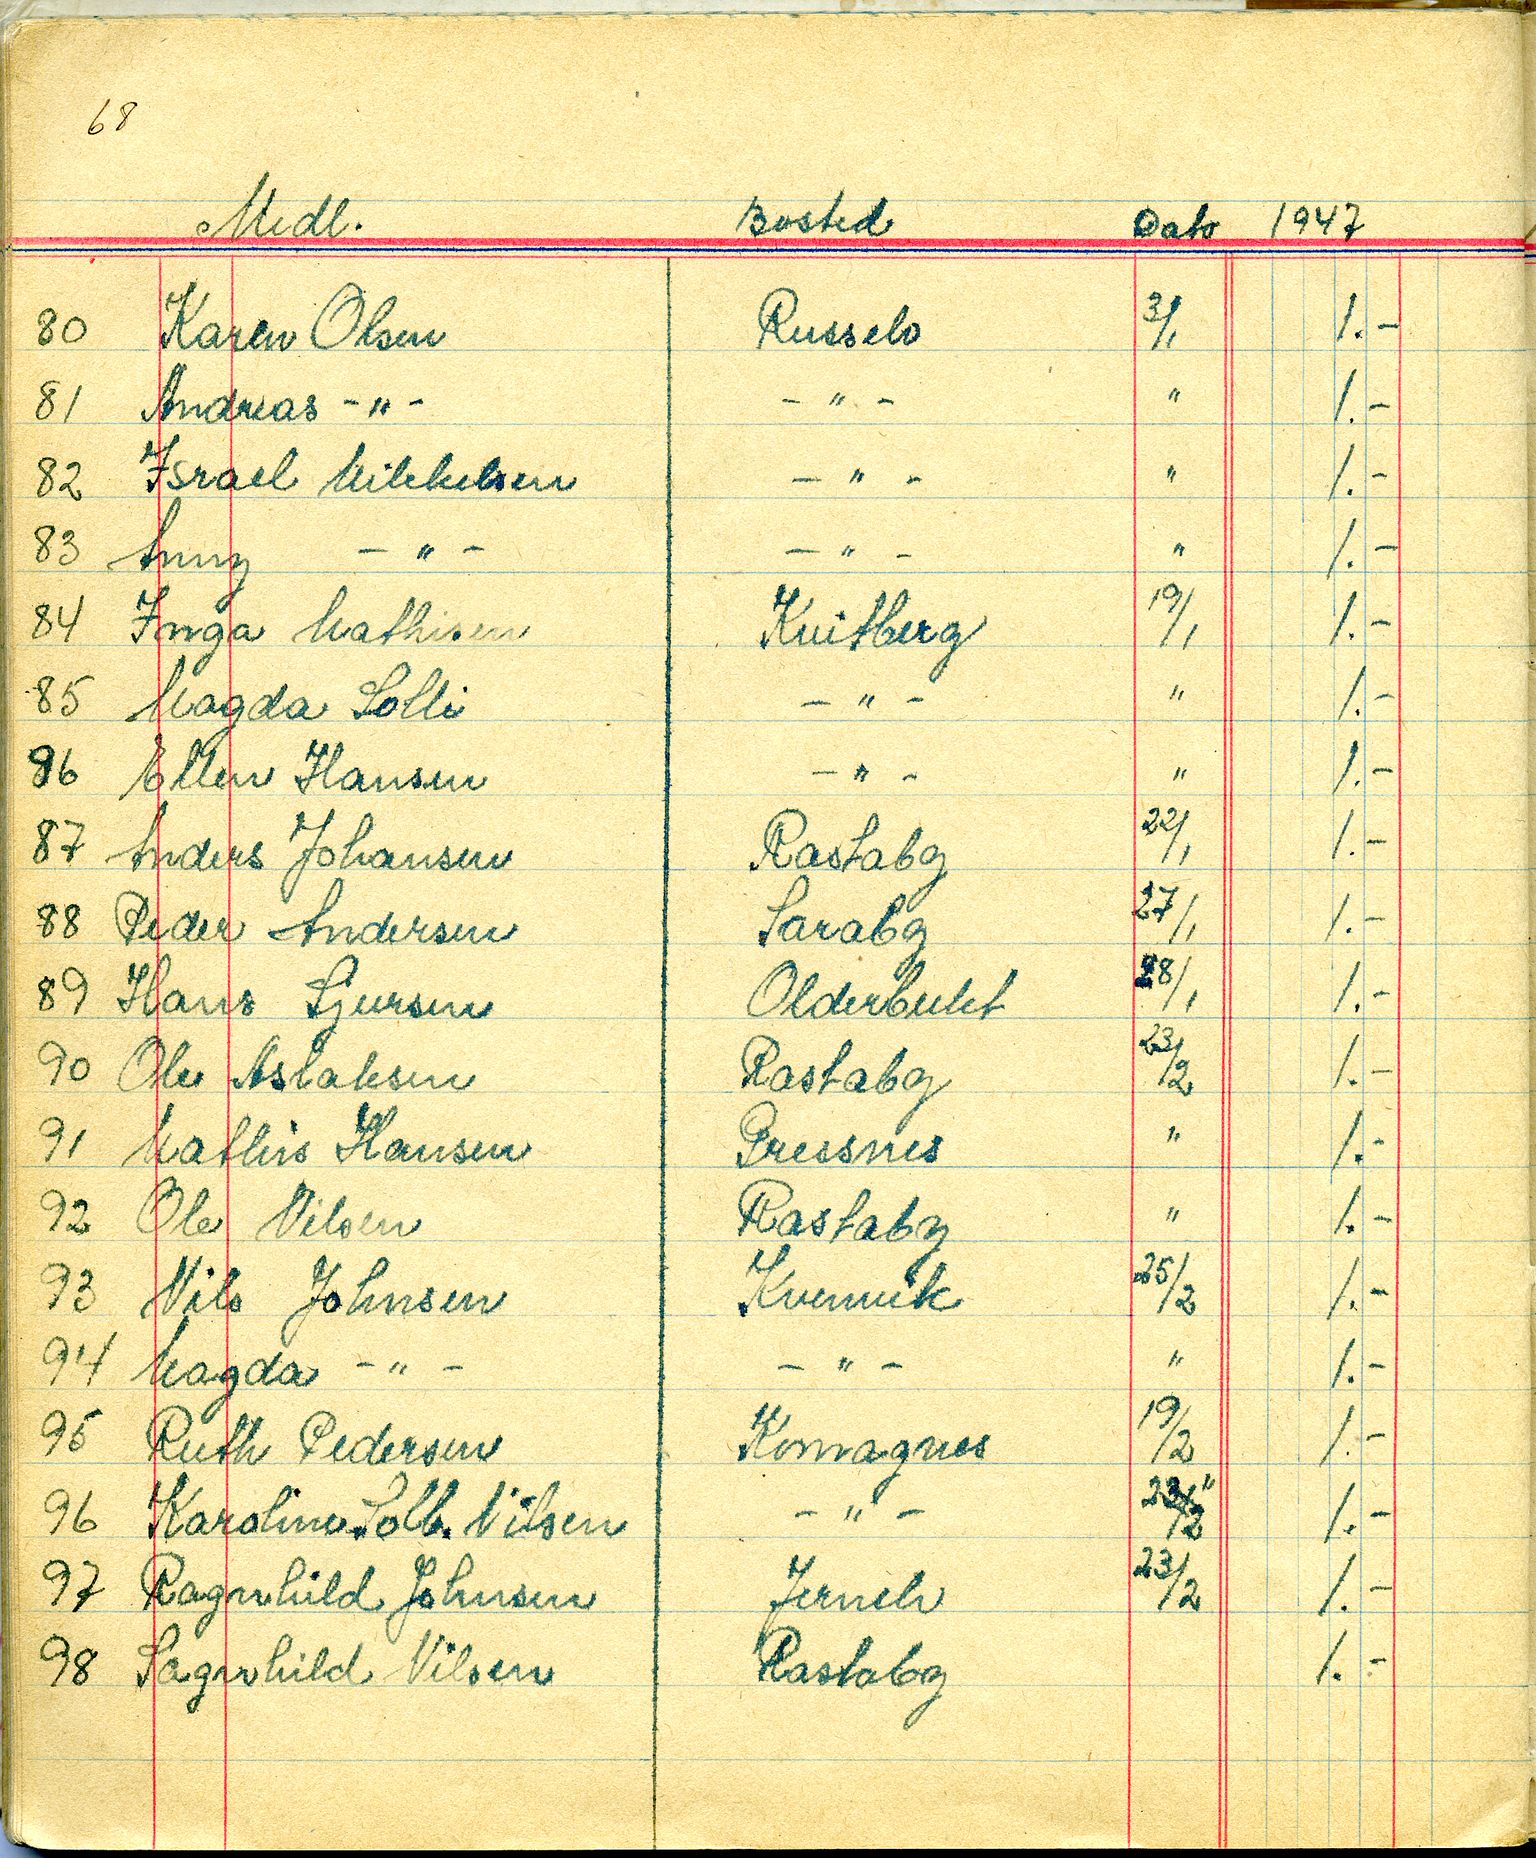 68
Medl. Bosted Dato 1947
80 Karen Olsen Russelv 3/1 1.-
81 Andreas -"- -"- " 1.-
82 Israel Mikkelsen -"- " 1.-
83 Anny -"- -"- " 1.-
84 Inga Mathisen Kvitberg 19/1 1.-
85 Magda Solli -"- " 1.-
86 Ellen Hansen -"- " 1.-
87 Anders Johansen Rastaby 22/1 1.-
88 Peder Andersen Saraby 27/1 1.-
89 Hans Sjursen Olderbukt 28/1 1.-
90 Ole Aslaksen Rastaby 23/2 1.-
91 Mathis Hansen Pressnes " 1.-
92 Ole Nilsen Rastaby " 1.-
93 Nils Johnsen Kvenvik 25/2 1.-
94 Magda -"- -"- " 1.-
95 Ruth Pedersen Komagnes 19/2 1.-
96 Karoline Solb. Nilsen -"- " 1.-
97 Ragnhild Johnsen Jernelv 23/2 1.-
98 Ragnhild Nilsen Rastaby 1.-